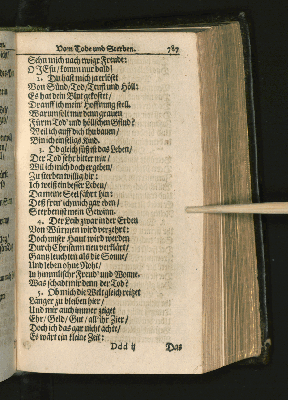 Vom Tode und Sterben. 787
Sehn mich nach ewiger Freude:
O JEsu / komm nur bald!
2. Du hast mich ja erlöset
Von Sünd / Tod / Teuf und Höll:
Es hat dein Blut gekostet /
Drauff ich mein Hoffnung stell.
Warum solt mir denn grauen
Fürm Tod und höllischen Gsind?
Weil ich auff dich thu bauen /
Bin ich ein seligs Kind.
3. Ob gleich süß ist das Leben /
Der Tod sehr bitter mir /
Wil ich mich doch ergeben /
Zu sterben willig dir:
Ich weiß ein besser Leben /
Da meine Seel fährt hin:
Deß freu ich mich gar eben /
Sterben ist mein Gewinn.
4. Der Leib zwar in der Erden
Von Würmen wird verzehrt:
Doch muser Haut wird werden
Durch Christum neu verklärt /
Gantz leuchten als die Sonne /
Und leben ohne Noht /
In himmlischer Freud und Wonne.
Was schadt mir denn der Tod?
5. Ob mich die Welt gleich reitzet
Länger zu bleiben hier /
Und mir auch immer zeiget
Ehr / Geld / Gut / all' ihr Zier /
Doch ich das gar nicht achte /
Es währt ein kleine Zeit:
Ddd ij Das